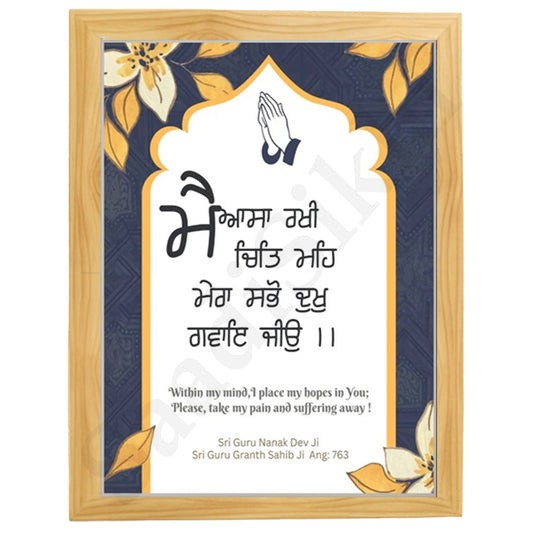 ਮੈ ਆਸਾ ਰਖੀ
ਚਿਤਿ ਮਹਿ
ਮੇਰਾ ਸਭੋ ਦੁਖੁ
ਗਵਾਇ ਜੀਉ ।।
Within my mind,I place my hopes in You;
Please, take my pain and suffering away !
Sri Guru Nanak Dev Ji
Sri Guru Granth Sahib Ji Ang: 763